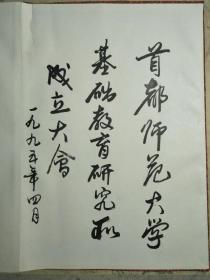 首都师范大学
基础教育研究所
成立大会
一九九五年四月